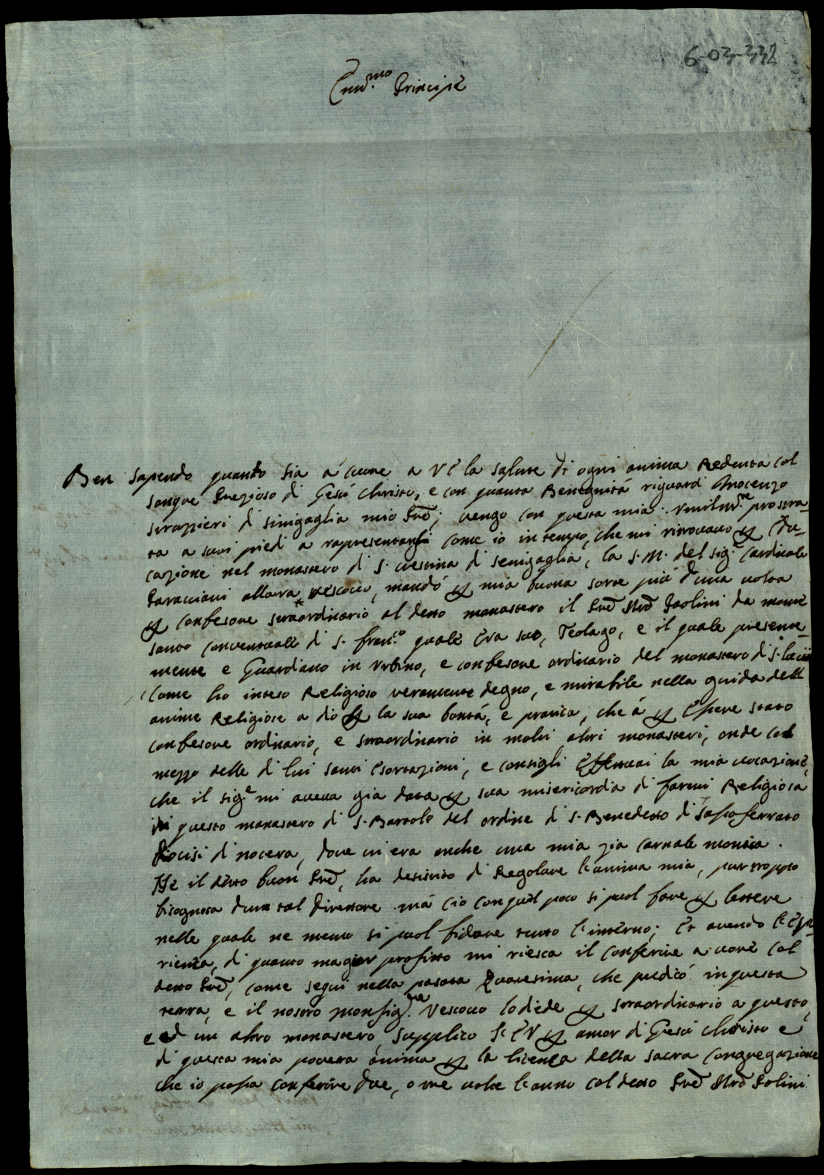 6-03-332
Em.mo Principe
Ben sapendo quanto sia à cuore a VE la salute di ogni anima Redenta col
sangue Prezioso di Gesù Christo, e con quanta Benegnità riguardi Inocenzo
di sinigaglia mio Prē; vengo con questa mia prostra-
ta a suoi piedi a rapresentargli come io in tempo, che mi ritrovavo p Edu-
cazione nel monastero di S. Cristina di senigaglia, la S. M. del sig.r Cardinale
Paracciani allora vescovo, mandò p mia buona sorte più d'una volta
p confesore straordinario al detto monastero il Prē Mrō Paolini da monte
santo conventuale di S. Fran.co quale Era suo Teolago, e il quale presente-
mente e Guardiano in Urbino, e confesore ordinario del monastero di S. Lucia
come ho inteso Religioso veramente degno, e mirabile nella guida dell
anime Religiose a dio p la sua bontà, e pratica, che à p Essere stato
confesore ordinario, e straordinario in molti altri monasteri, onde col
mezzo delle di lui santi Esortazioni, e consigli Effettuai la mia vocazione,
che il sig.e mi aveva già data p sua misericordia di farmi Religiosa
in questo monastero di S. Bartolo del ordine di S. Benedetto di Sassoferrato
Diocisi di nocera, dove vi era anche una mia zia carnale monica.
il detto buon Prē, ha desinito di Regolare l'anima mia, purtroppo
bisognosa d'un tal direttore mà ciò con quel poco si puol fare p lettere
nelle quale ne meno si puol fidare tutto l'interno; Et avendo l'Espe-
rienza, di quanto magior profitto mi riesca il conferire a voce col
detto Prē, come seguì nella pasata Quaresima, che predicò in questa
terra, e il nostro monsig.r Vescovo lo diede p straordinario a questo,
ed un altro monastero, supplico l'EV p amor di Gesù Christo e
di questa mia povera anima p la licenza della sacra congregazione
che io possa conferire due, o tre volte l'anno col detto Prē Mrō Polini